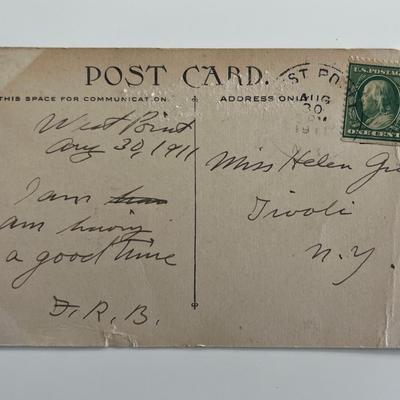 POST CARD.
THIS SPACE FOR COMMUNICATION
ADDRESS ONLY
U.S. POSTAGE
ONE CENT
AUG
30
PM
1911
West Point
Aug 30, 1911
I am
am having
a good time
F.R.B.
Miss Helen
Tivoli
N.Y.